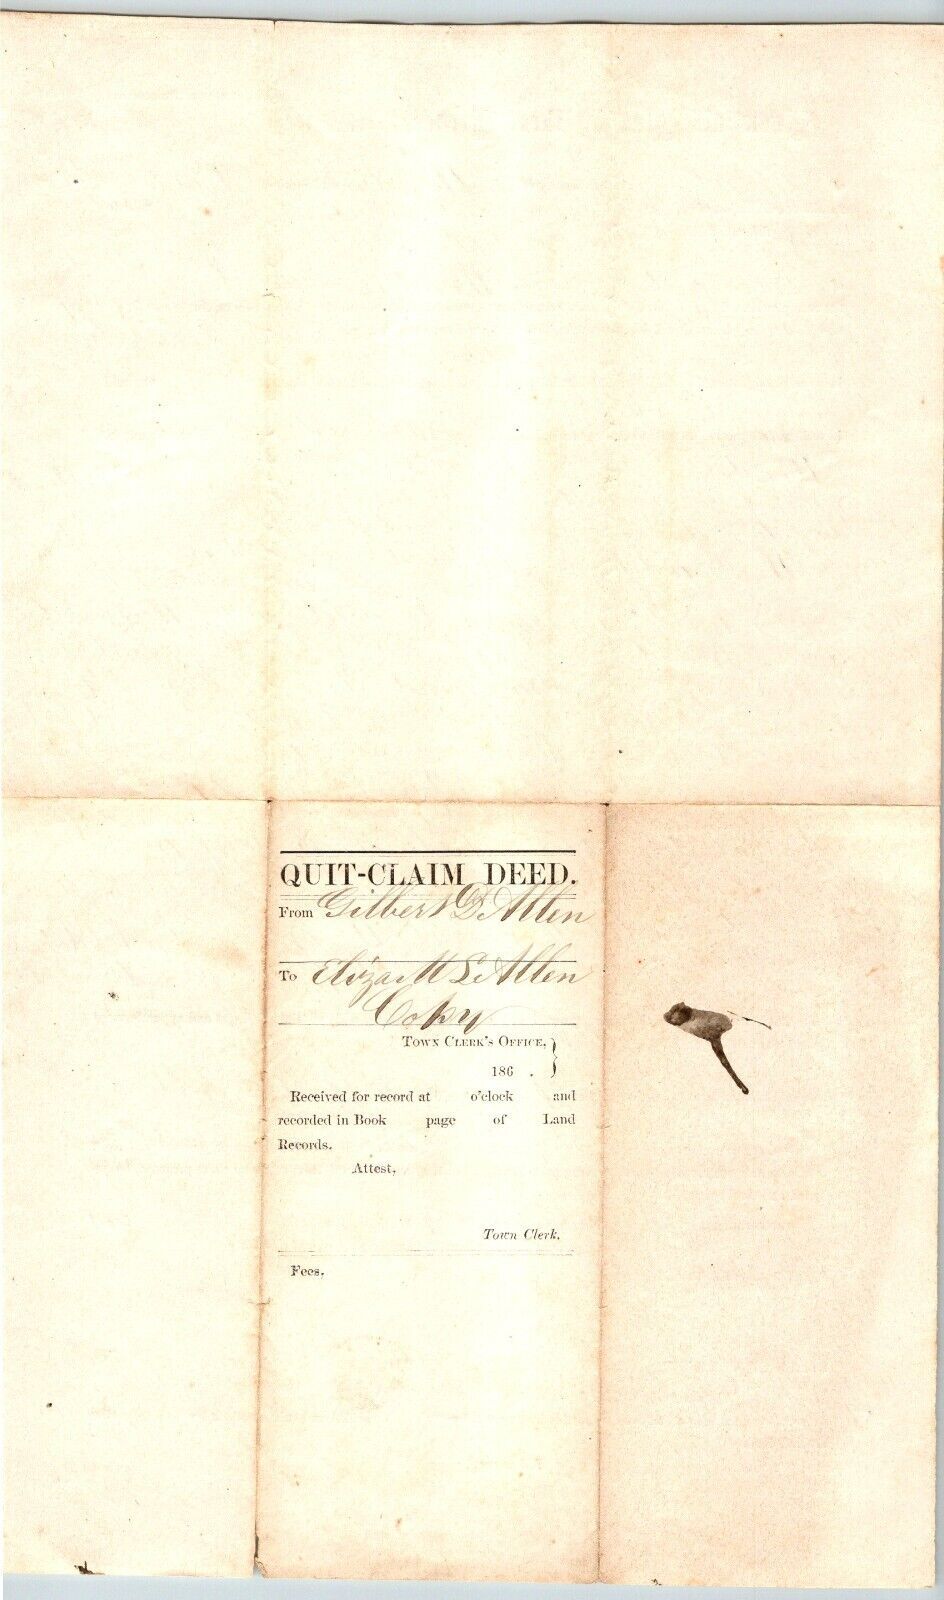 QUIT-CLAIM DEED.
From Gilbert D. Allen
To Eliza M L. Allen
Copy
TOWN CLERK'S OFFICE, }
186 .
Received for record at o'clock and
recorded in Book page of Land
Records.
Attest,
Town Clerk.
Fees,